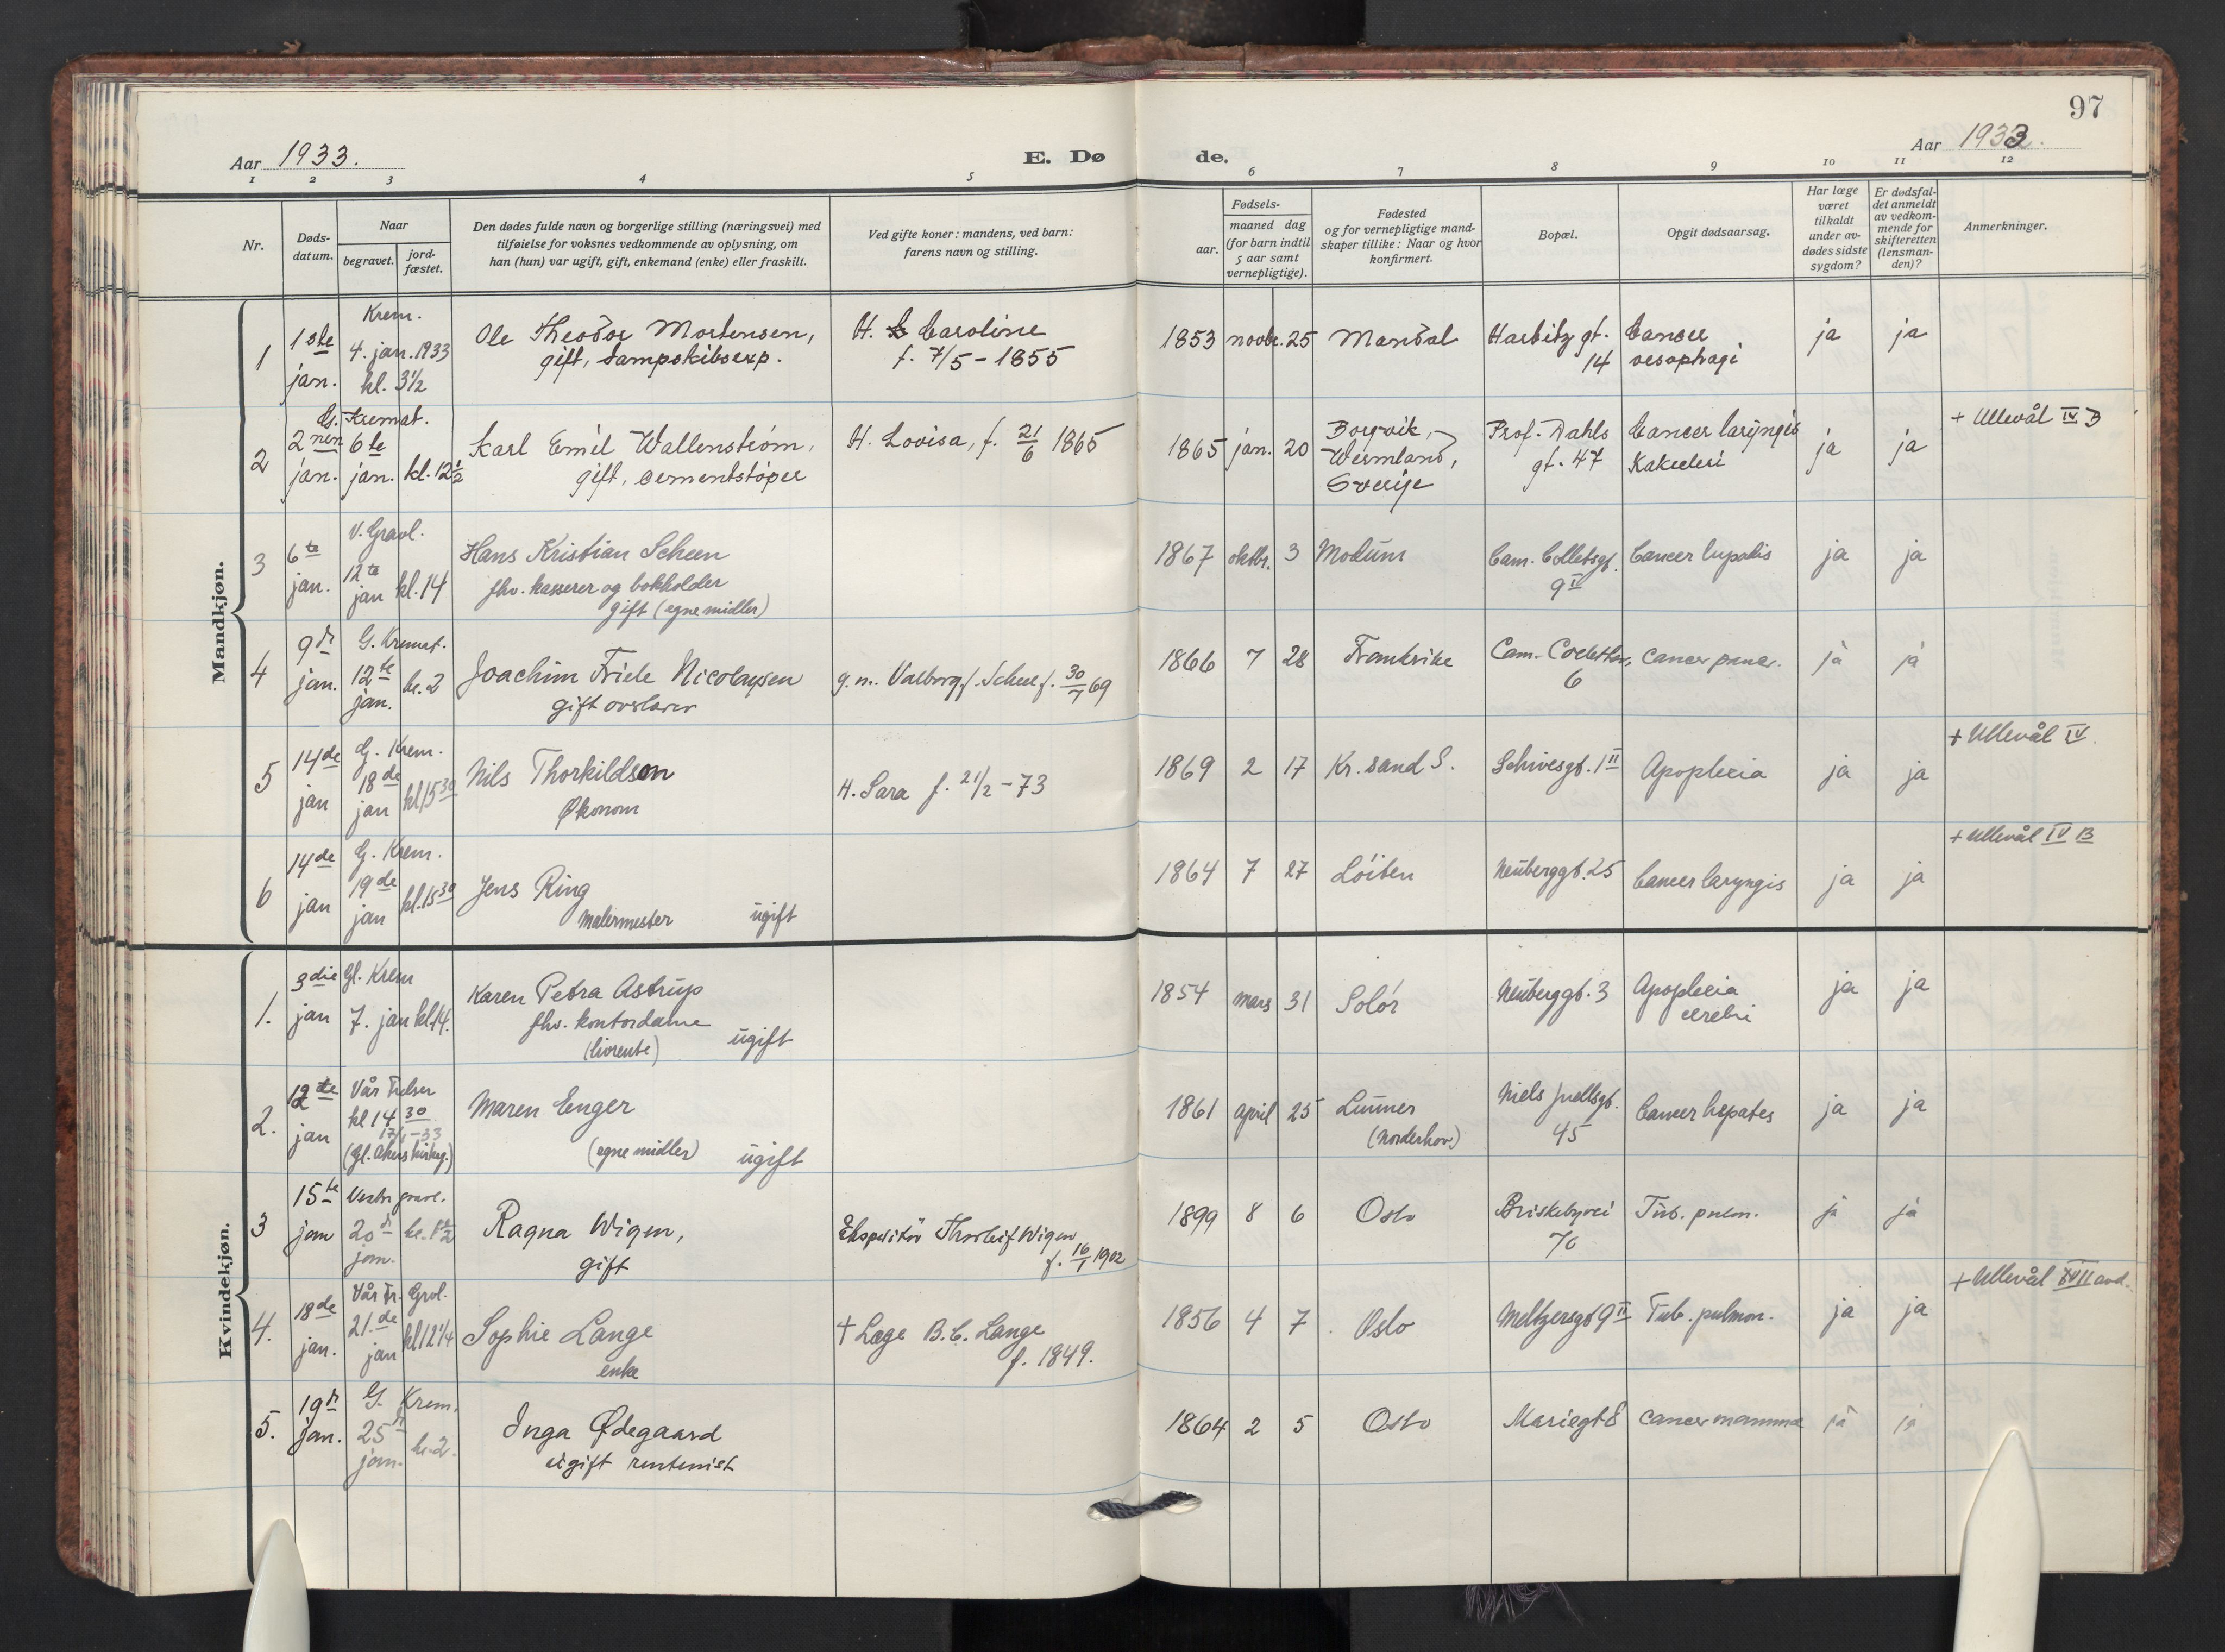 97
Aar 1933.
E. Dø
de.
Aar 1933.
1 2 3 4 5 6 7 8 9 10 11 12
Nr.
Døds-
datum.
Naar
begravet.
jord-
fæstet.
Den dødes fulde navn og borgerlige stilling (næringsvei) med
tilføielse for voksnes vedkommende av oplysning, om
han (hun) var ugift, gift, enkemand (enke) eller fraskilt.
Ved gifte koner: mandens, ved barn:
farens navn og stilling.
Fødsels-
aar.
maaned dag
(for barn indtil
5 aar samt
vernepligtige).
Fødested
og for vernepligtige mand-
skaper tillike: Naar og hvor
konfirmert.
Bopæl.
Opgit dødsaarsag.
Har læge
været
tilkaldt
under av-
dødes sidste
sygdom?
Er dødsfal-
det anmeldt
av vedkom-
mende for
skifteretten
(lensman-
den)?
Anmerkninger.
Mandkjøn.
1
1ste
jan.
Krem.
4. jan. 1933
kl. 3½
Ole Theodor Mortensen,
gift, dampskibsexp.
H. Caroline
f. 7/5 - 1855
1853 novbr. 25 Mandal
Harbitz gt.
14
Cancer
oesophagi
ja ja
2
2nen
jan.
G. Kremat.
6te
jan. kl. 12½
Karl Emil Wallenstrøm,
gift, cementstøper
H. Lovisa, f. 21/6 1865
1865 jan. 20
Borgvik,
Wermland,
Sverige
Prof. Dahls
gt. 47
Cancer laryngis
Kakeksi
ja ja
+ Ullevål IV B
3
6te
jan.
V. Gravl.
12te
jan kl. 14
Hans Kristian Scheen
fhv. kasserer og bokholder
gift (egne midler)
1867 oktbr. 3 Modum
Cam. Colletsgt.
9 II
Cancer
ja ja
4
9de
jan.
G. Kremat.
12te
jan. kl. 2
Joachim Friele Nicolaysen
gift
g. m. Valborg f. Scheel f. 30/7 69
1866 7 28 Frankrike
Cam. Collettsv.
6
Cancer pancr.
ja ja
5
14de
jan
G. Krem.
18de
jan kl 15 30
Nils Thorkildsen
Økonom
H. Sara f. 21/2 - 73
1869 2 17 Kr. sand S.
Schivesgt. 1 II
Apoplexia
ja ja
+ Ullevål IV.
6
14de
jan
G. Krem.
19de
jan kl. 15 30
Jens Ring
Malermester ugift
1864 7 27 Løiten
Neuberggt. 25
Cancer laryngis
ja ja
+ Ullevål IV B
Kvindekjøn.
1.
3die
jan
Gl. Krem
7. jan kl. 14.
Karen Petra Astrup
fhv. kontordame
(livrente) ugift
1854 mars 31 Solør
Neuberggt. 3
Apoplexia
cerebri
ja ja
2.
12te
jan
Vår Frelser
kl 14 30
17/1 - 33
(Gl. Akers kirkeg.)
Maren Enger
(egne midler) ugift
1861 april 25
Lunner
(Norderhov)
Niels Juellsgt.
45
Cancer hepates
ja ja
3
15te
jan
Vestre gravl.
20de
jan.
Ragna Wigen,
gift
Ekspeditør Thorleif Wigen
f. 16/1 1902
1899 8 6 Oslo
Briskebyvei
70
Tub. pulm.
ja ja
4.
18de
jan.
Vår Fr. Grvl.
21.de
jan kl 12¼
Sophie Lange
enke
+ Læge B. C. Lange
f. 1849.
1856 4 7 Oslo
Meltzersgt 9 II
Tub. pulmon.
ja ja
+ Ullevål avd.
5.
19de
jan.
G. Krem.
25de
jan. kl. 2.
Inga Ødegaard
ugift rentenist
1864 2 5 Oslo
Mariegt 8
Cancer mammae
ja ja